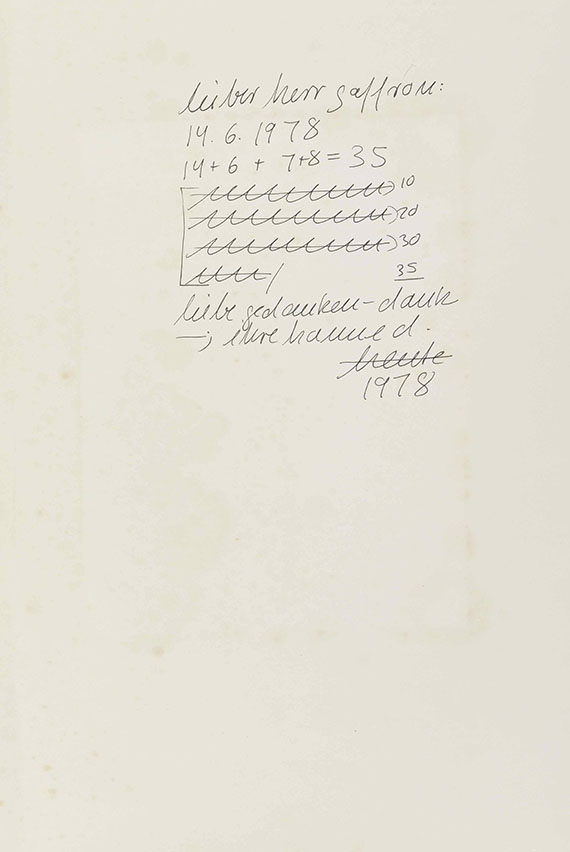 lieber herr gaffron:
14. 6. 1978
14 + 6 + 7+8 = 35
10
20
30
35
liebe gedanken – dank
–; ihre hanne d.
heute
1978